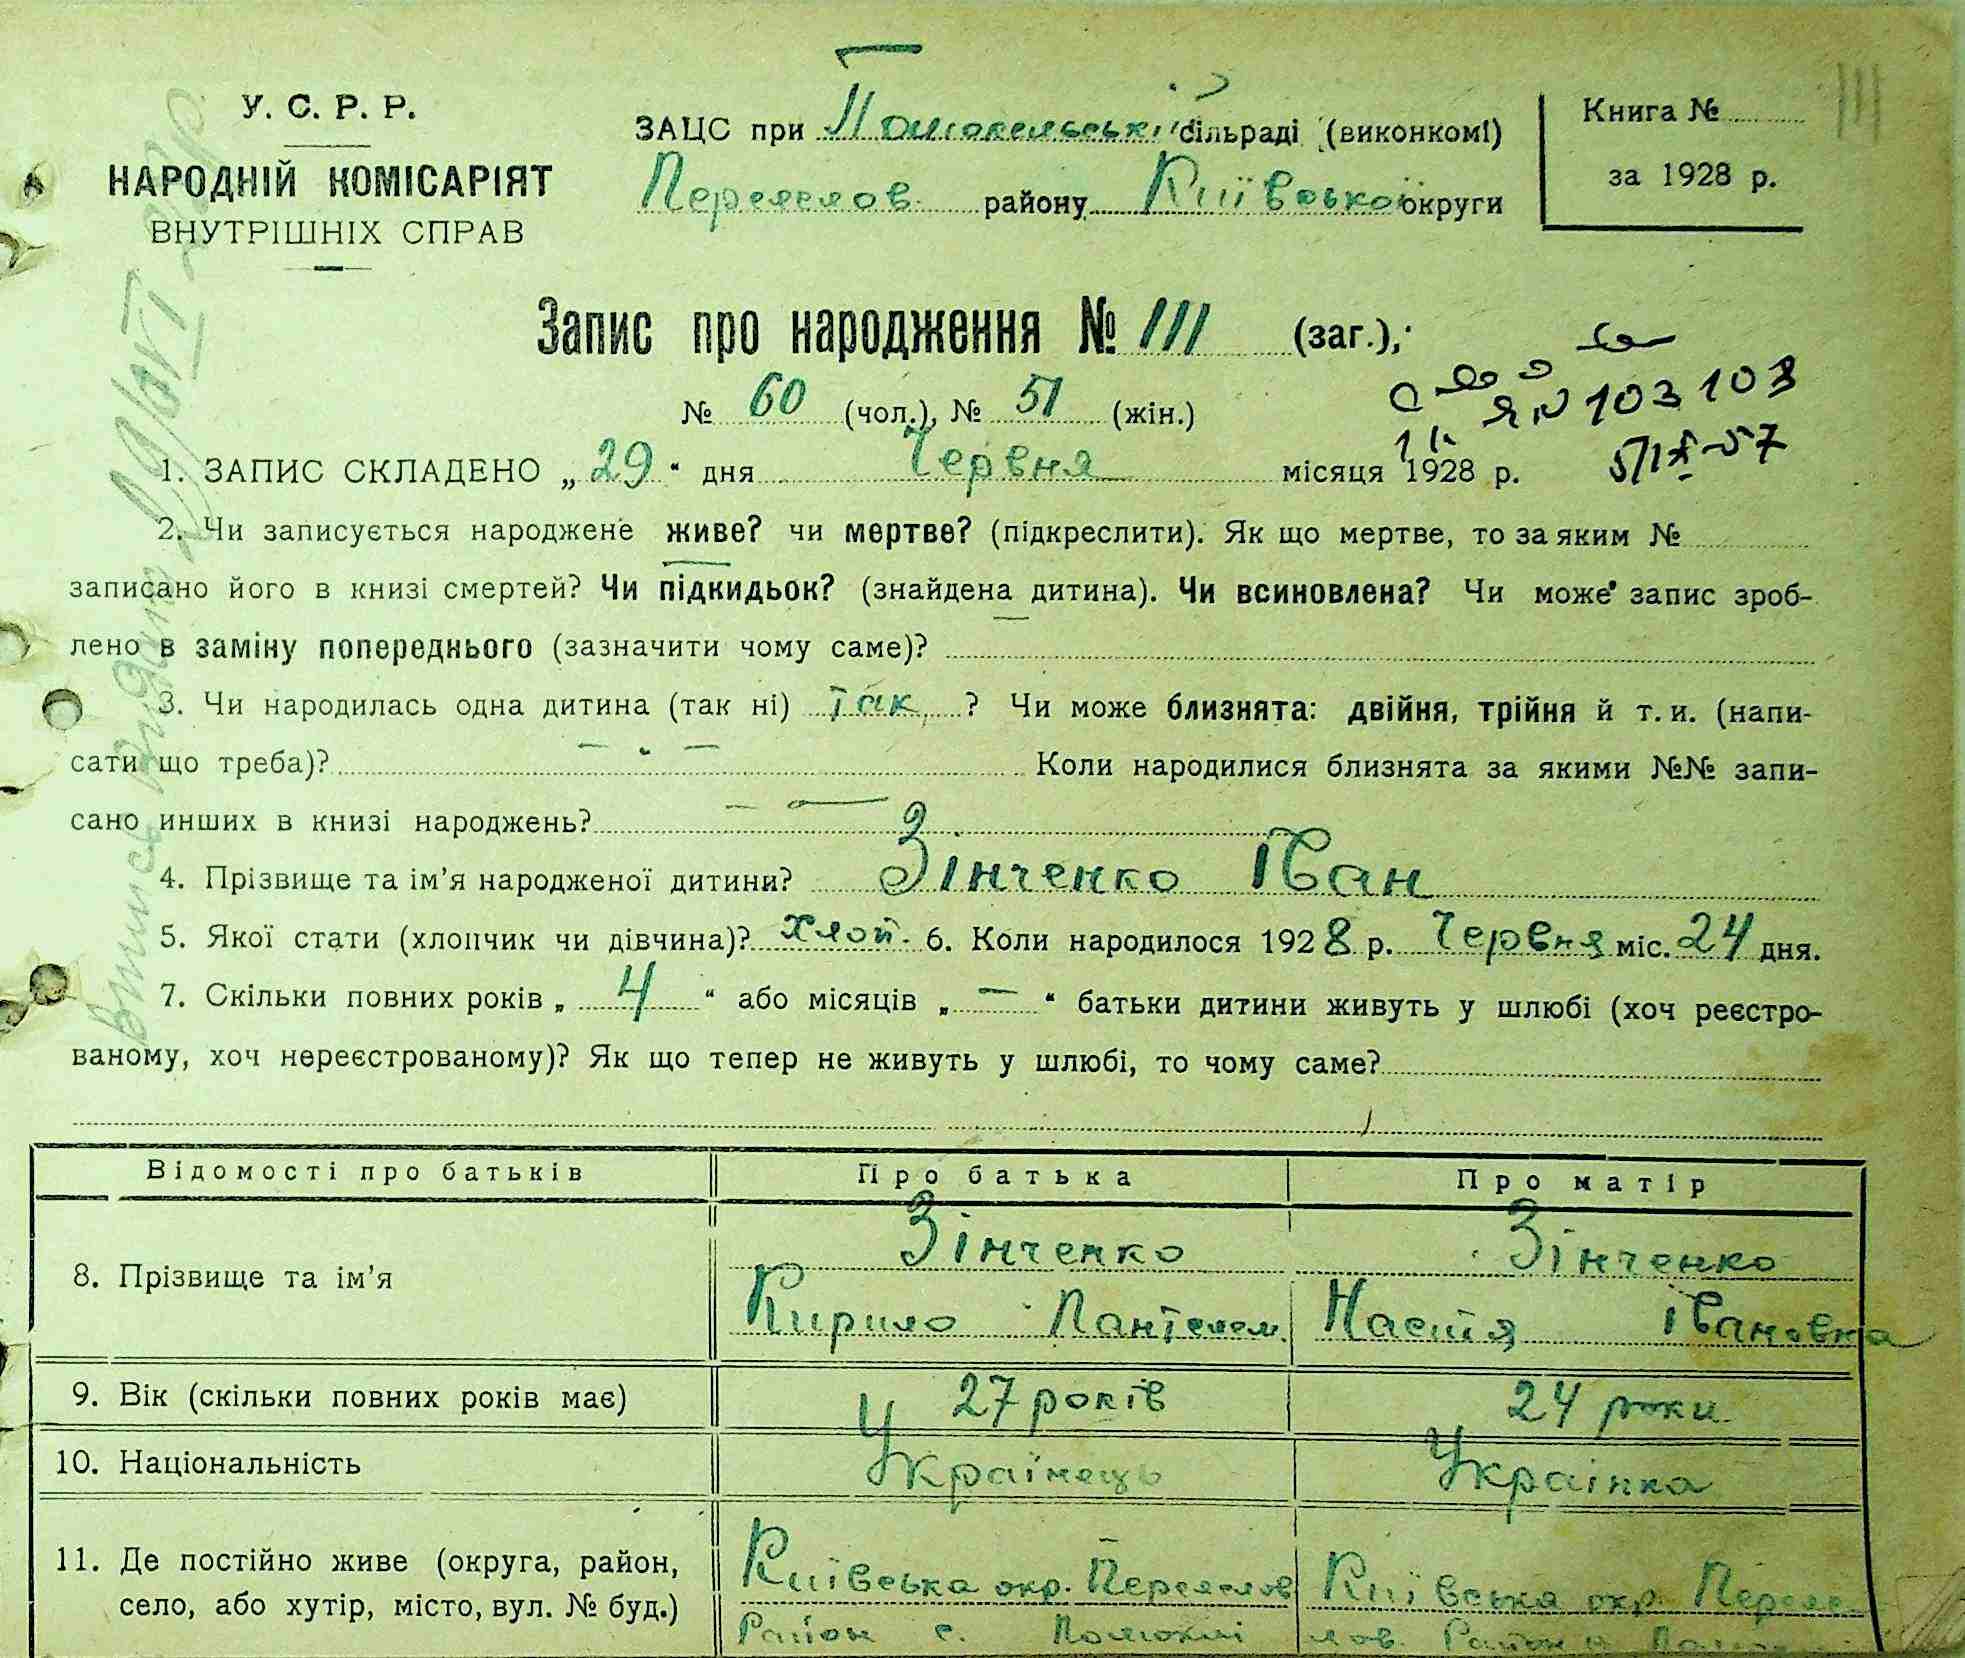 111
У. С. Р. Р.
НАРОДНІЙ КОМІСАРІЯТ
ВНУТРІШНІХ СПРАВ
ЗАЦС при Помокельській сільраді (виконкомі)
Переяслов району Київської округи
Книга №
за 1928 р.
Запис про народження № 111 (заг.),
№ 60 (чол.), № 51 (жін.)
ЯЮ 103103
5/IX-57
1. ЗАПИС СКЛАДЕНО „ 29 “ дня Червня місяця 1928 р.
2. Чи записується народжене живе? чи мертве? (підкреслити). Як що мертве, то за яким №
записано його в книзі смертей? Чи підкидьок? (знайдена дитина). Чи всиновлена? Чи може запис зроб-
лено в заміну попереднього (зазначити чому саме)?
3. Чи народилась одна дитина (так ні) так ? Чи може близнята: двійня, трійня й т. и. (напи-
сати що треба)? Коли народилися близнята за якими №№ запи-
сано инших в книзі народжень?
4. Прізвище та ім’я народженої дитини? Зінченко Іван
5. Якої стати (хлопчик чи дівчина)? хлоп. 6. Коли народилося 1928 р. Червня міс. 24 дня.
7. Скільки повних років „ 4 “ або місяців „ — “ батьки дитини живуть у шлюбі (хоч реєстро-
ваному, хоч нереєстрованому)? Як що тепер не живуть у шлюбі, то чому саме?
Відомості про батьків Про батька Про матір
8. Прізвище та ім’я Зінченко Зінченко
Кирило Пантелем. Настя Івановна
9. Вік (скільки повних років має) 27 років 24 роки
10. Національність Українець Українка
11. Де постійно живе (округа, район, Київська окр. Переяслов Київська окр. Переяс
село, або хутір, місто, вул. № буд.) Район с. Помоклі лов. Район с. Помоклі